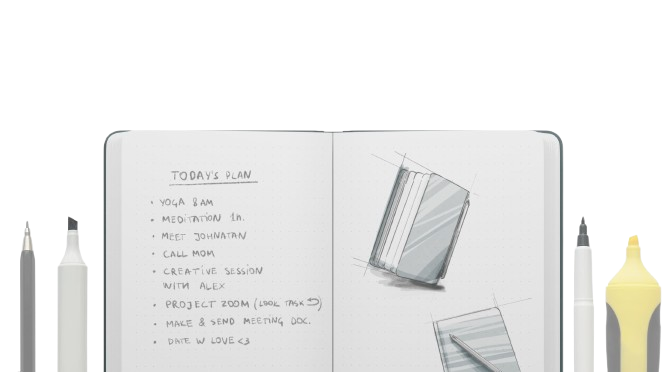 TODAY'S PLAN
• YOGA 8AM
• MEDITATION 1H.
• MEET JOHNATAN
• CALL MOM
• CREATIVE SESSION
WITH ALEX
• PROJECT ZOOM (LOOK TASK ⮌)
• MAKE & SEND MEETING DOC.
• DATE W LOVE <3